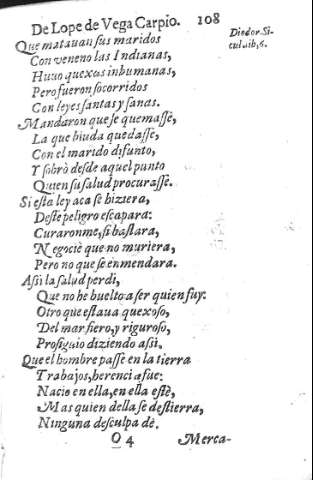 De Lope de Vega Carpio. 108
Diodor. Si-
cul. lib, 6.
Que matauan sus maridos
Con veneno las Indianas,
Huuo quexas inhumanas,
Pero fueron socorridos
Con leyes santas y sanas.
Mandaron que se quemasse,
La que biuda quedasse,
Con el marido difunto,
Y sobrò desde aquel punto
Quien su salud procurasse.
Si esta ley aca se hiziera,
Deste peligro escapara:
Curaronme, si bastara,
Negociè que no muriera,
Pero no que se enmendara.
Assi la salud perdi,
Que no he buelto a ser quien fuy:
Otro que estaua quexoso,
Del mar fiero, y riguroso,
Prosiguio diziendo assi.
Que el hombre passe en la tierra
Trabajos, herencia fue:
Nacio en ella, en ella estè,
Mas quien della se destierra,
Ninguna desculpa dè.
O 4 Merca-